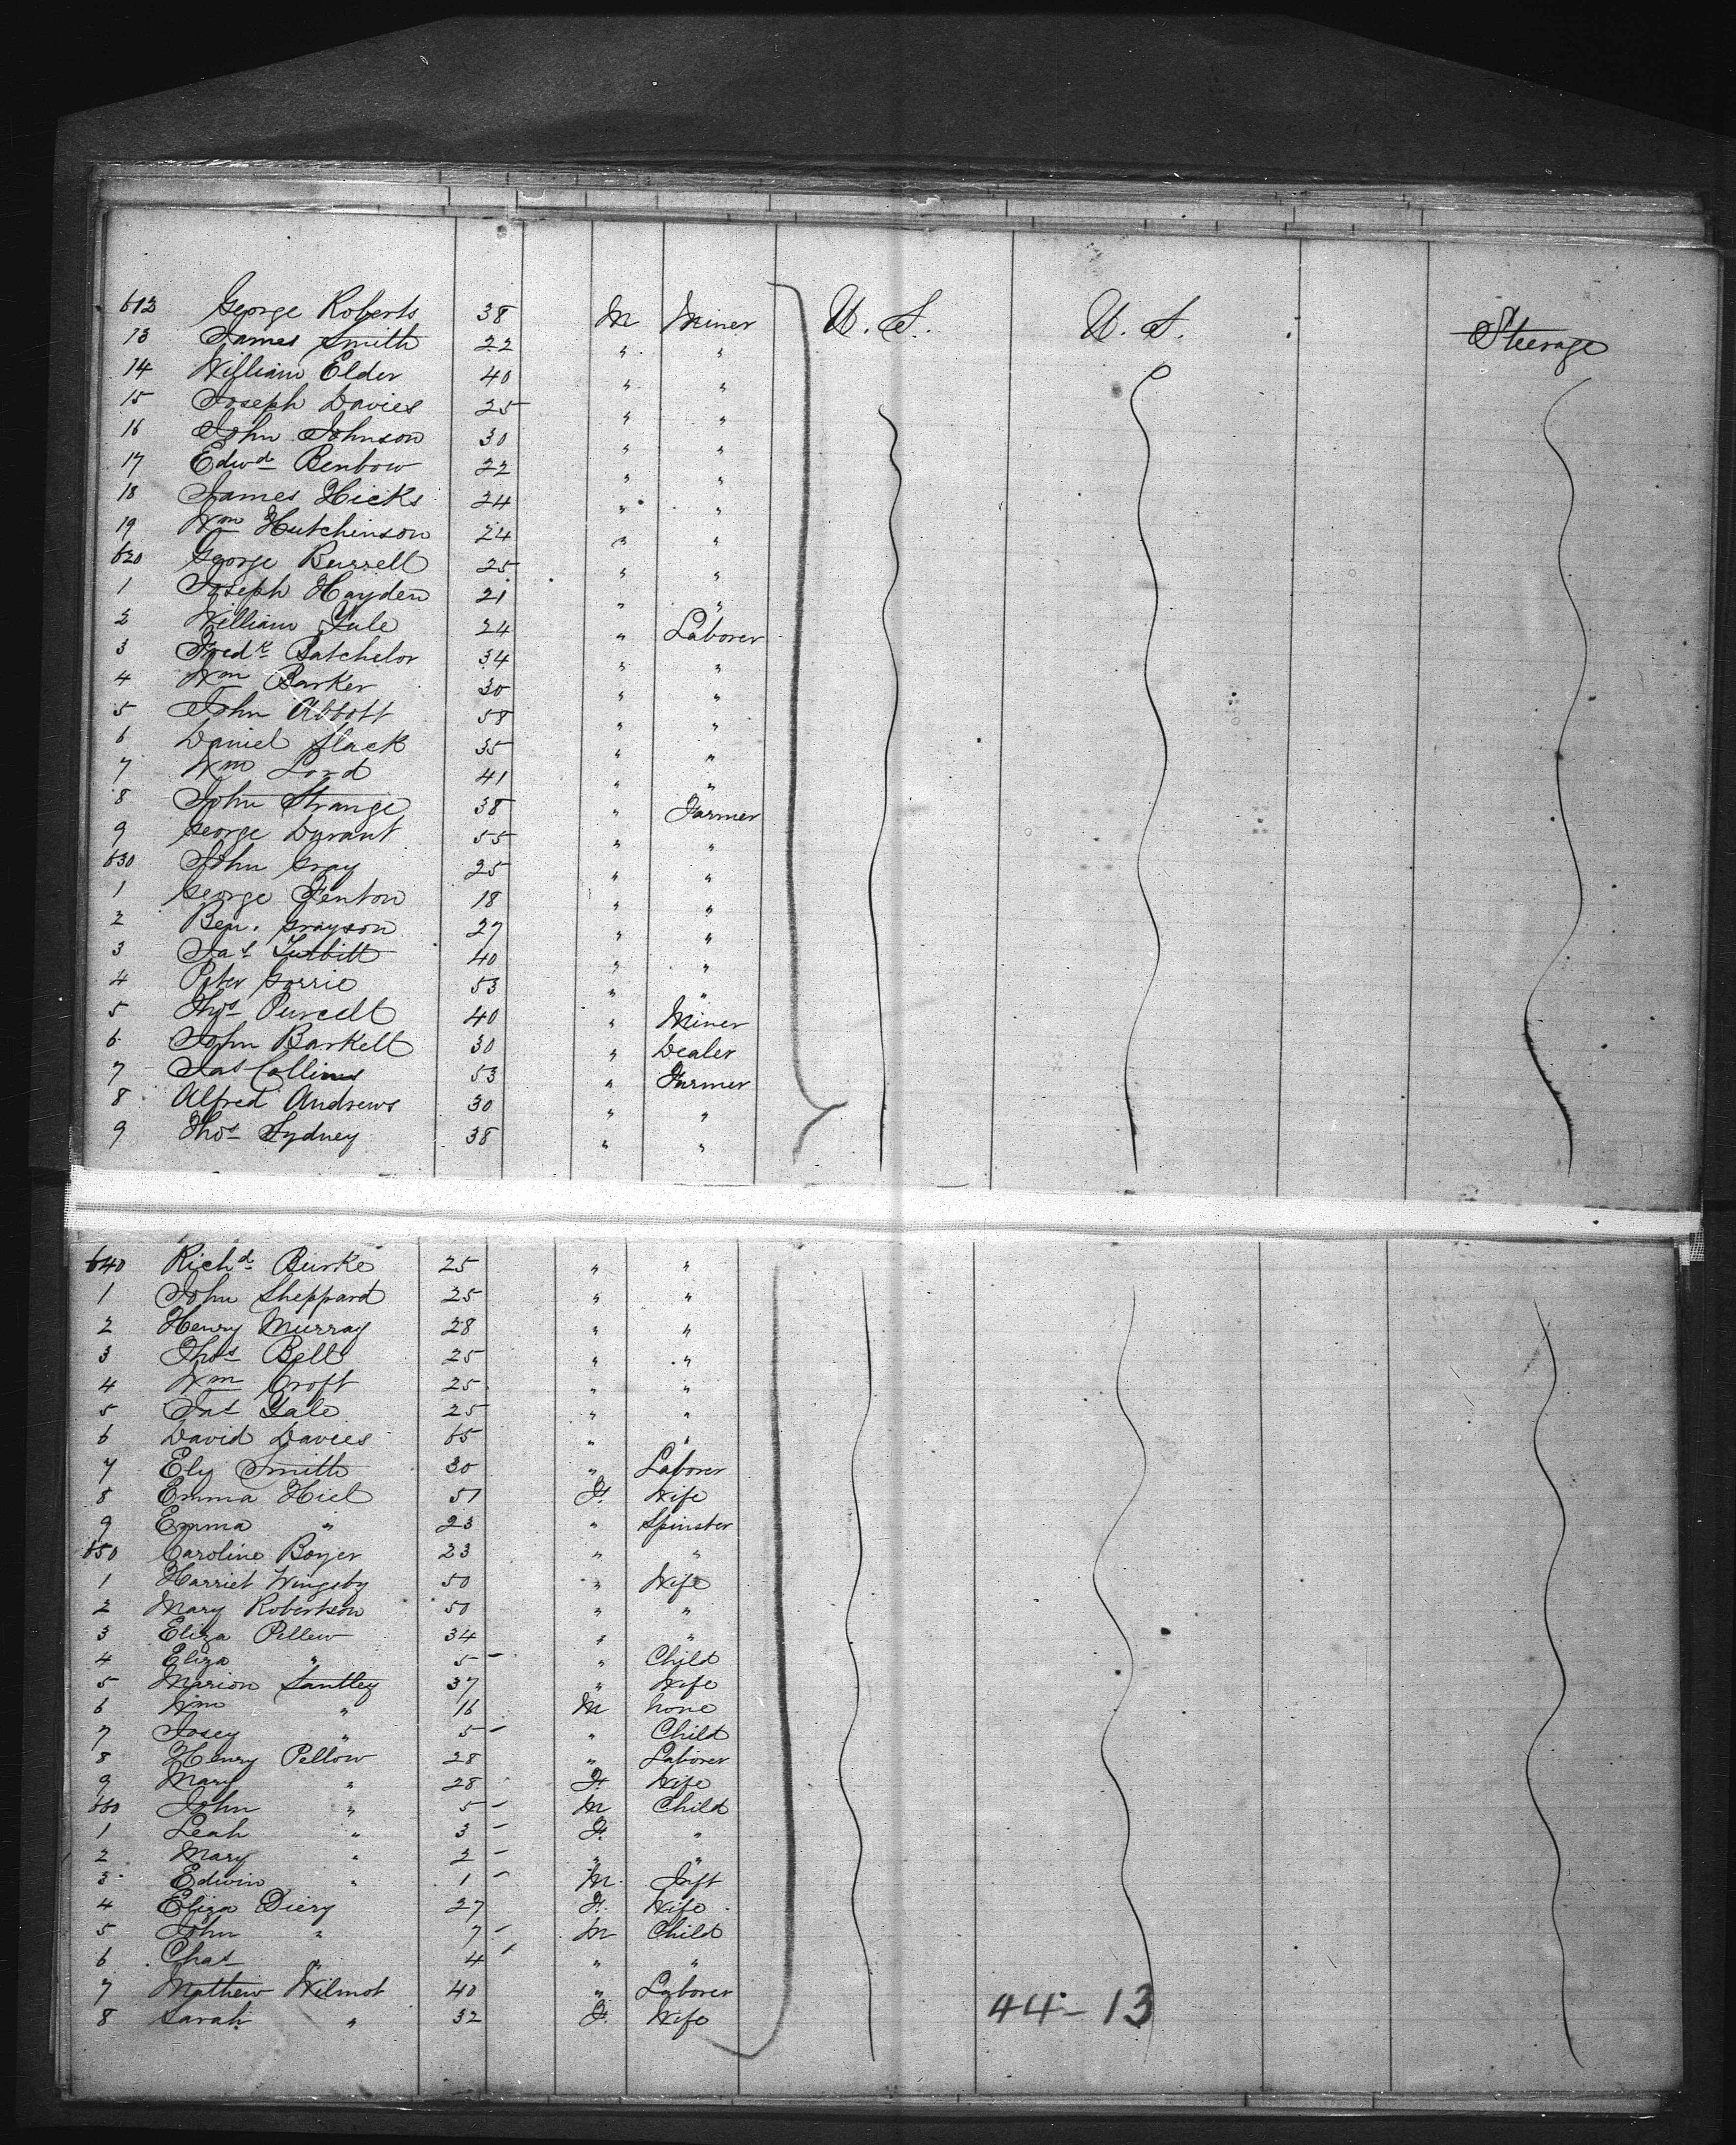 612 George Roberts 38 M Miner U. S. U. S. Steerage
13 James Smith 22 " "
14 William Elder 40 " "
15 Joseph Davies 25 " "
16 John Johnson 30 " "
17 Edwd Benbow 22 " "
18 James Hicks 24 " "
19 Wm Hutchinson 24 " "
620 George Burrell 25 " "
1 Joseph Hayden 21 " "
2 William Yule 24 " Laborer
3 Fredk Batchelor 34 " "
4 Wm Barker 30 " "
5 John Abbott 58 " "
6 Daniel Slack 35 " "
7 Wm Lord 41 " "
8 John Strange 38 " Farmer
9 George Durant 55 " "
630 John Gray 25 " "
1 George Fenton 18 " "
2 Ben. Grayson 27 " "
3 Jas Turbitt 40 " "
4 Peter Gorrie 53 " "
5 Thos Purcell 40 " Miner
6 John Barkell 30 " Dealer
7 Jas Collins 53 " Farmer
8 Alfred Andrews 30 " "
9 Thos Sydney 38 " "
640 Richd Burke 25 " "
1 John Sheppard 25 " "
2 Henry Murray 28 " "
3 Thos Bell 25 " "
4 Wm Croft 25 " "
5 Jas Gale 25 " "
6 David Davies 65 " "
7 Ely Smith 30 " Laborer
8 Emma Hiel 51 F. Wife
9 Emma " 23 " Spinster
650 Caroline Boyer 23 " "
1 Harriet Wingsby 50 " Wife
2 Mary Robertson 50 " "
3 Eliza Pellew 34 " "
4 Eliza " 5 - " Child
5 Marion Santley 37 " Wife
6 Wm " 16 M none
7 Josey " 5 - " Child
8 Henry Pellow 28 " Laborer
9 Mary " 28 F. Wife
660 John " 5 - M Child
1 Leah " 3 - F. "
2 Mary " 2 - " "
3 Edwin " 1 - M. Inft
4 Eliza Diery 27 F. Wife
5 John " 7 - M Child
6 Chas " 4 - " "
7 Mathew Wilmot 40 " Laborer
8 Sarah " 32 F. Wife
44-13